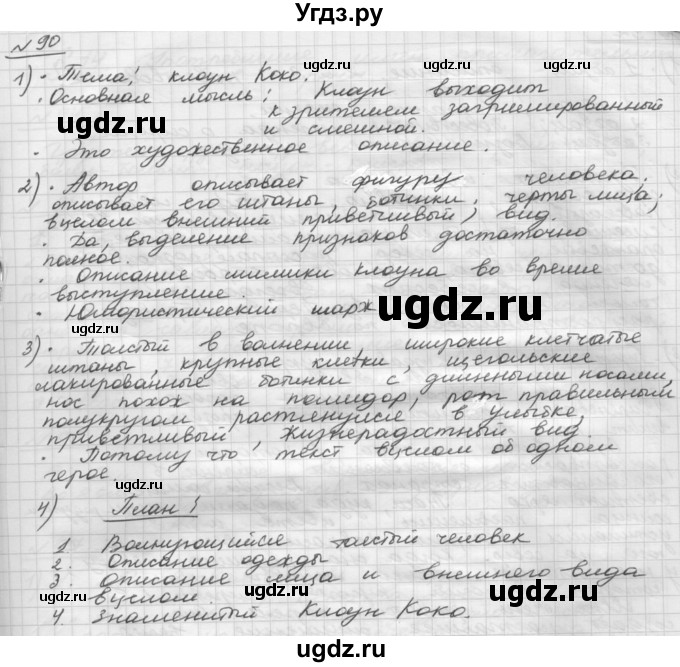 Угдз.ру
№ 90
1) · Тема: клоун Коко.
· Основная мысль: Клоун выходит
к зрителем загримированный
и смешной.
· Это художественное описание.
2) · Автор описывает фигуру человека.
описывает его штаны, ботинки, черты лица;
вцелом внешний приветчивый вид.
· Да, выделение признаков достаточно
полное.
· Описание мимики клоуна во время
выступление.
· Юмористический шарж
3) · Толстый в волнении, широкие клетчатые
штаны, крупные клетки, щегольские
лакированные ботинки с длинными носами,
нос похож на помидор, рот правильным
полукругом растянуйся в улыбке,
приветливый, жизнерадостный вид.
· Потому что текст вцелом об одном
герое.
4) План:
1. Волнующийся толстый человек
2. Описание одежды
3. Описание лица и внешнего вида
вцелом
4. Знаменитый Клоун Коко.
ugdz.ru